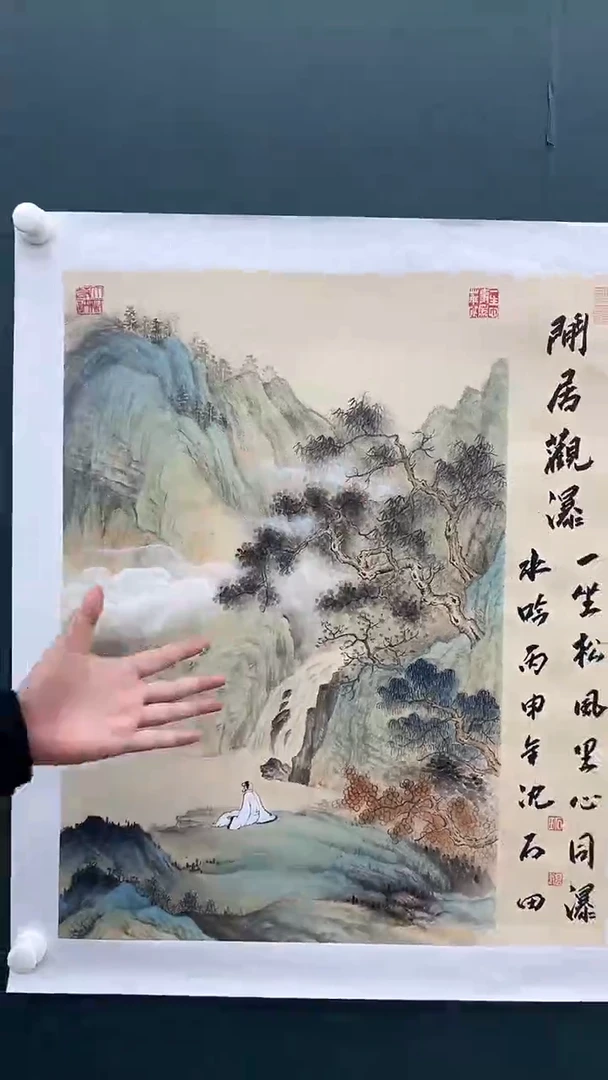 閒居觀瀑
一坐松風里心同瀑
水吟丙申年沈石田